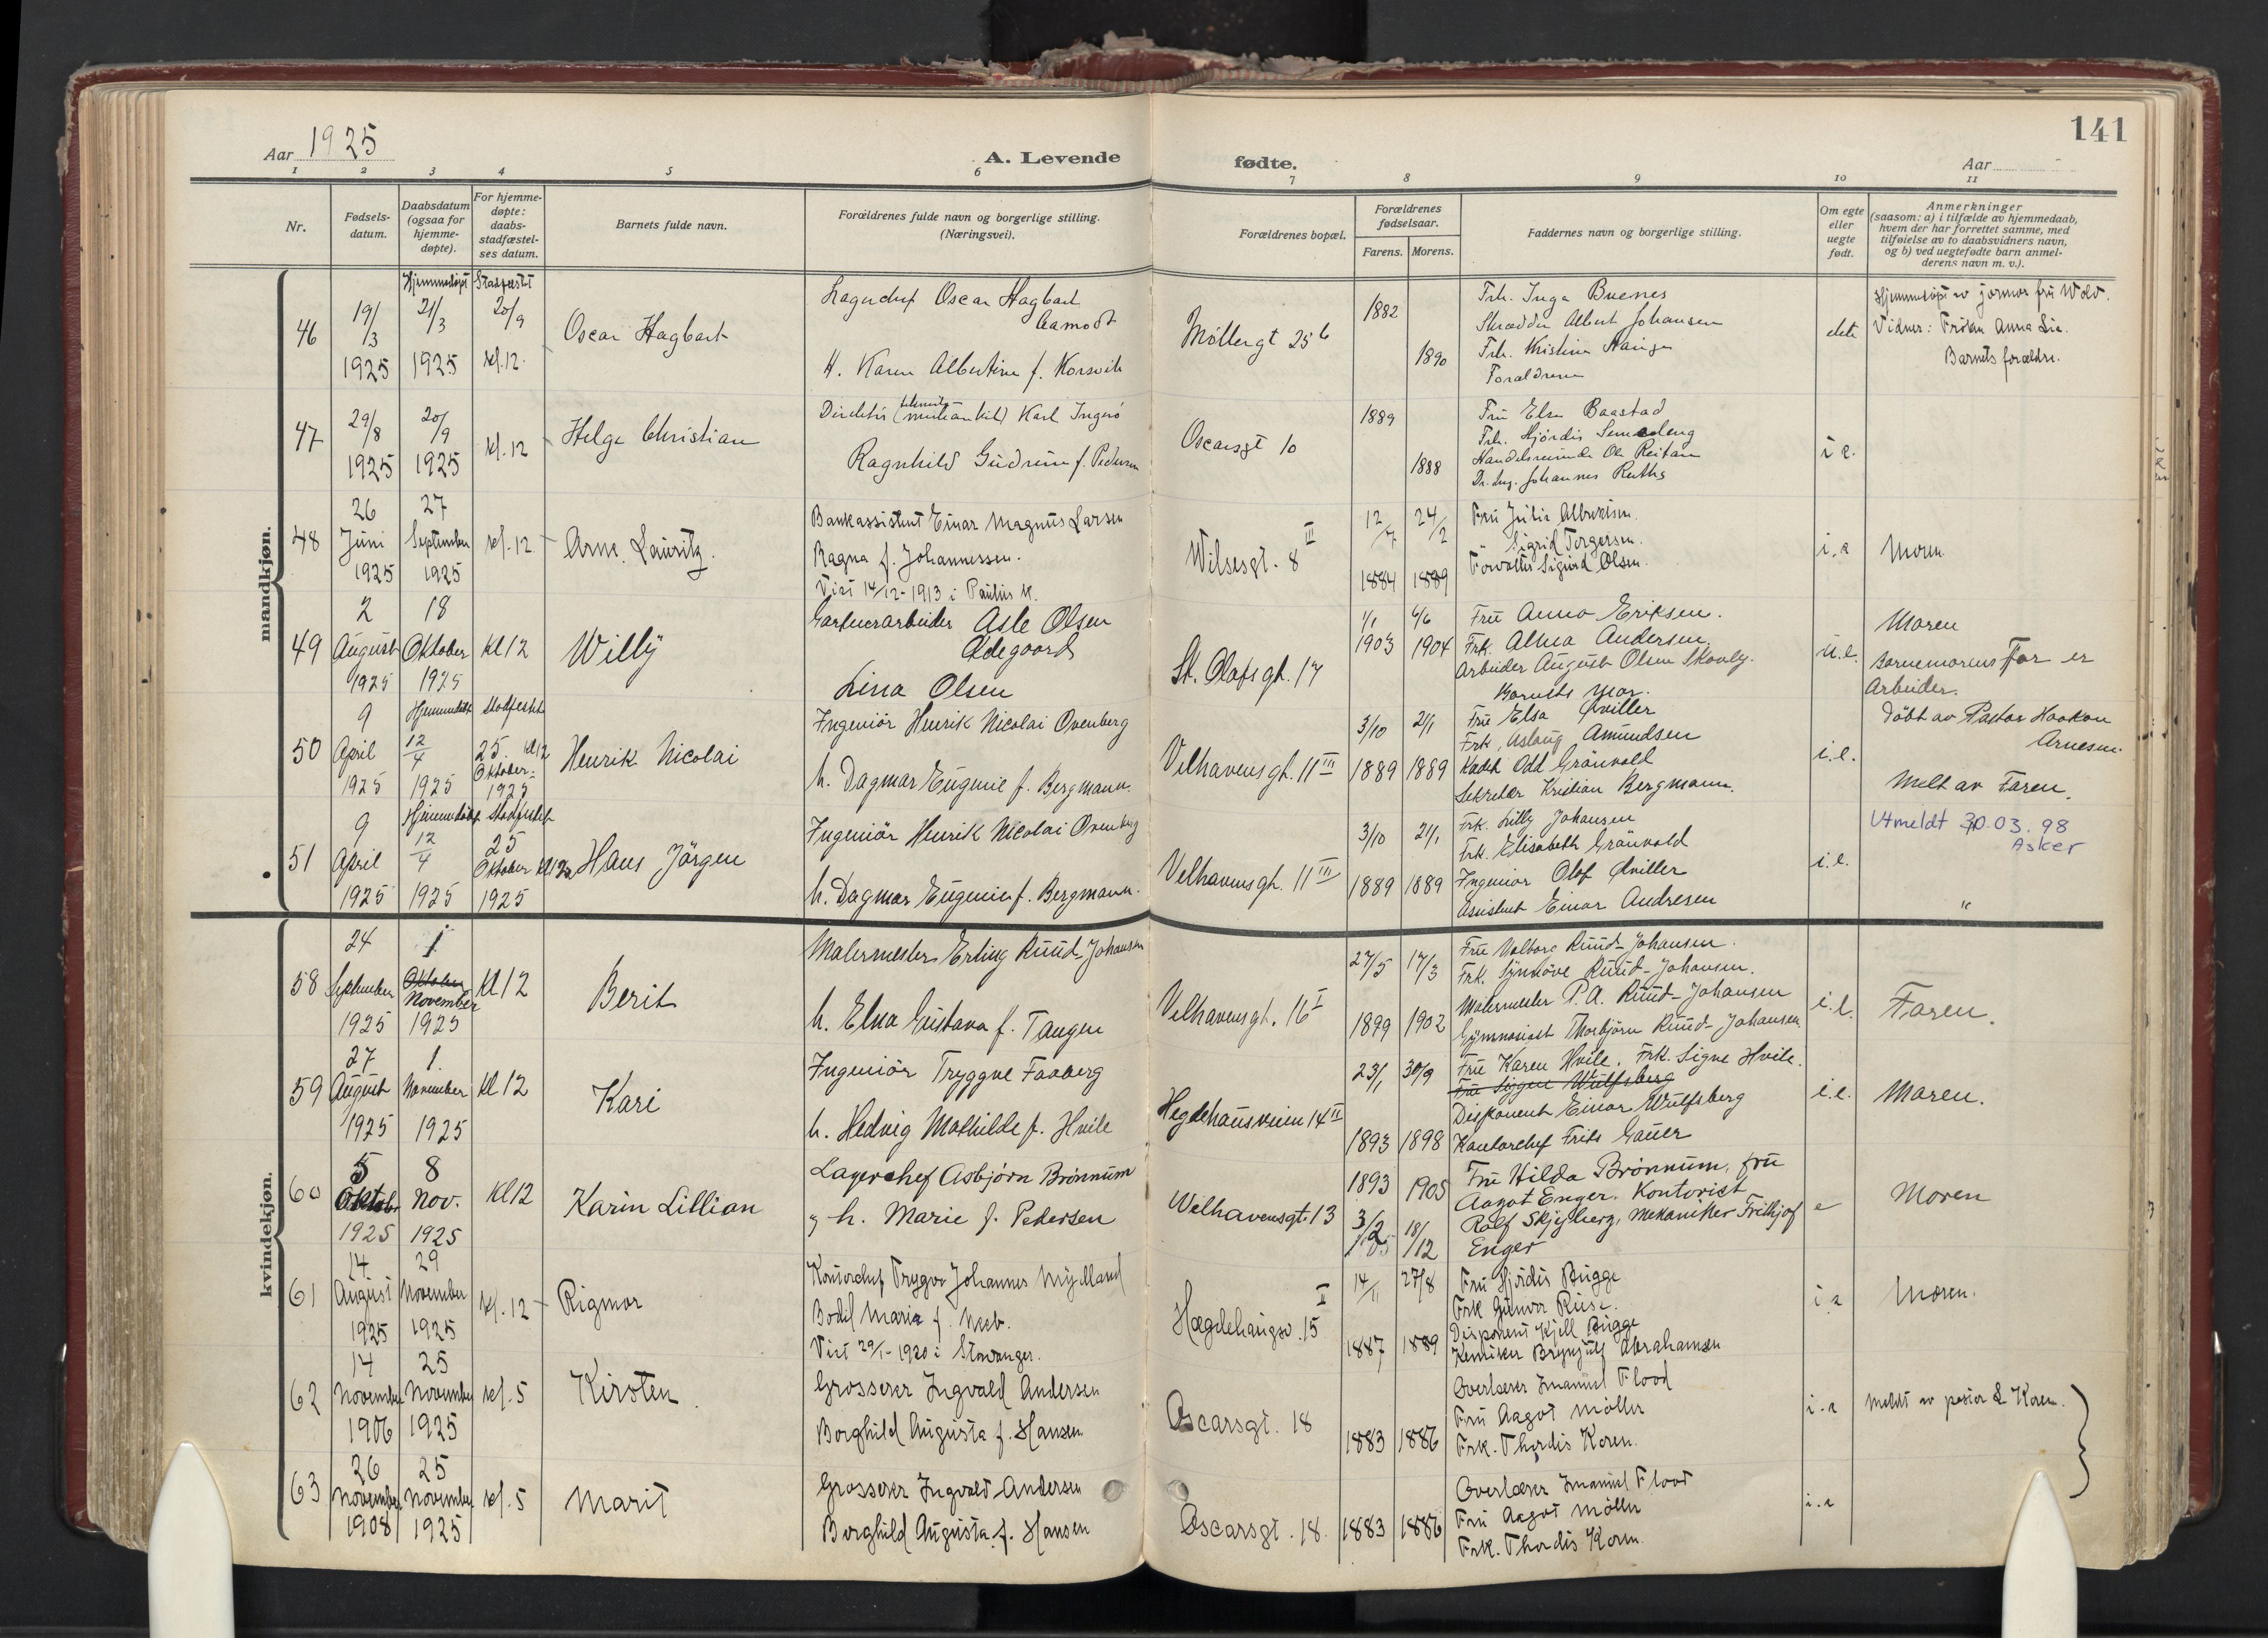 141
Aar 1925
A. Levende
fødte.
Aar
1 2 3 4 5 6 7 8 9 10 11
Nr.
Fødsels-
datum.
Daabsdatum
(ogsaa for
hjemme-
døpte).
For hjemme-
døpte:
daabs-
stadfæstel-
ses datum.
Barnets fulde navn.
Forældrenes fulde navn og borgerlige stilling.
(Næringsvei).
Forældrenes bopæl.
Forældrenes
fødselsaar.
Farens. Morens.
Faddernes navn og borgerlige stilling.
Om egte
eller
uegte
født.
Anmerkninger
(saasom: a) i tilfælde av hjemmedaab,
hvem der har forrettet samme, med
tilføielse av to daabsvidners navn,
og b) ved uegtefødte barn anmel-
derens navn m. v.).
mandkjøn.
46
19/3
1925
Hjemmedöpt
21/3
1925
20/9
kl. 12.
Oscar Hagbart
Lagerchef Oscar Hagbart
Aamodt
H. Karen Albertine f. Korsvik
Möllergt 25 b
1882
1890
Frk. Inga Buenes
Skrædder Albert Johansen
Frk. Kristine
Forældrene
Hjemmedöpt av jormor fru Wold.
Vidner: Fröken Anna Lie.
Barnets forældre.
47
29/8
1925
20/9
1925
kl. 12
Helge Christian
Karl Ingerö
Ragnhild Gudrun f. Pedersen
Oscarsgt 10
1889
1888
Fru Elsa Baastad
Frk. Hjördis
Ole Reitan
Dr. Ing. Johannes Ruths
i e.
48
26
Juni
1925
27
September
1925
kl. 12
Arne Lauritz.
Bankassistent Einar Magnus Larsen
Ragna f. Johannessen.
Viet 14/12-1913 i Paulus k.
Wilsesgt. 8 II
12/7
1884
24/2
1889
Fru Julie Albrektsen.
" Sigrid Torgersen.
Forvalter Sigurd Olsen.
i. e
Moren
49
2
August
1925
18
Oktober
1925
kl 12
Willy
Gartnerarbeider Asle Olsen
Ödegaard
Lina Olsen
St. Olafs gt. 17
1/1
1903
6/6
1904
Frü Anna Eriksen.
Frk. Alma Andersen.
Arbeider August Olsen Skovly.
Barnets mor.
u. e.
Moren
Barnemorens Far er
Arbeider.
50
9
April
1925
Hjemmedöbt
12/4
1925
Stadfestet
25. kl 12
Oktober.
1925
Henrik Nicolai
Ingeniör Henrik Nicolai Ovenberg
h. Dagmar Eugenie f. Bergmann.
Velhavensgt. 11 III
3/10
1889
21/1
1889
Frü Elsa Qviller
Frk. Aslaug Amundsen
Kadet Odd Grönvold
Sekretær Kristian Bergmann.
i. e.
Döbt av Pastor Haakon
Arnesen.
Melt av Faren.
51
9
April
1925
Hjemmedöbt
12/4
1925
Stadfestet
25
Oktober kl 12
1925
Hans Jörgen
Ingeniör Henrik Nicolai Ovenberg
h. Dagmar Eugenie f. Bergmann.
Velhavensgt. 11 III
3/10
1889
21/1
1889
Frk. Lilly Johansen
Frk. Elisabeth Grönvold
Ingeniör Olof Qviller
Assistent Einar Andresen
i. e.
Utmeldt 30.03.98
Asker
"
kvindekjøn.
58
24
September
1925
1
Oktober
November
1925
Kl 12
Berit
Malermester Erling Ruud-Johansen
h. Elna Gustava f. Tangen
Velhavensgt. 16 I
27/5
1899
17/3
1902
Frü Valborg Ruud-Johansen.
Frk. Synnöve Ruud-Johansen.
Malermester P. A. Ruud-Johansen
Gymnasiast Thorbjörn Ruud-Johansen.
i. e.
Faren.
59
27
August
1925
1.
November
1925
kl 12
Kari
Ingeniör Tryggve Faaberg
h. Hedvig Mathilde f. Hvile
Hegdehausveien 14 II
23/1
1893
30/9
1898
Frü Karen Hvile. Frk. Signe Hvile.
Frü Wulfsberg
Disponent Einar Wulfsberg
Kontorchef Frits Gauer
i. e.
Moren.
60
5
Oktob.
1925
8
Nov.
1925
Kl 12
Karin Lillian
Lagerchef Asbjörn Brönnum
og h. Marie f. Pedersen
Welhavensgt. 13
1893
3/2
1905
18/12
Fru Hilda Brönnum, fru
Aagot Enger. Kontorist
Rolf Skjefberg, Mekaniker Frithjof
Enger
e
Moren
61
14
August
1925
29
November
1925
kl. 12
Rigmor
Kontorchef Trygve Johannes Mydland
Bodil Marie f. Neeb.
Viet 29/1-1920 i Stavanger.
Hægdehaugsv. 15 II
14/11
1887
27/8
1889
Fru Hjördis Bugge
Frk Gunvor Riise.
Disponent Kjell Bugge
Kemiker Brynjulf Abrahamsen
i e
Moren.
62
14
November
1906
25
November
1925
kl. 5
Kirsten
Grosserer Ingvald Andersen
Borghild Augusta f. Hansen
Oscarsgt. 18
1883
1886
Overlærer Imanuel Flood
Fru Aagot Möller
Frk. Thordis Koren.
i. e
Meldt av pastor L Koren.
63
26
November
1908
25
November
1925
kl. 5
Marit
Grosserer Ingvald Andersen
Borghild Augusta f. Hansen
Oscarsgt. 18.
1883
1886
Overlærer Imanuel Flood
Fru Aagot Möller
Frk. Thordis Koren.
i. e